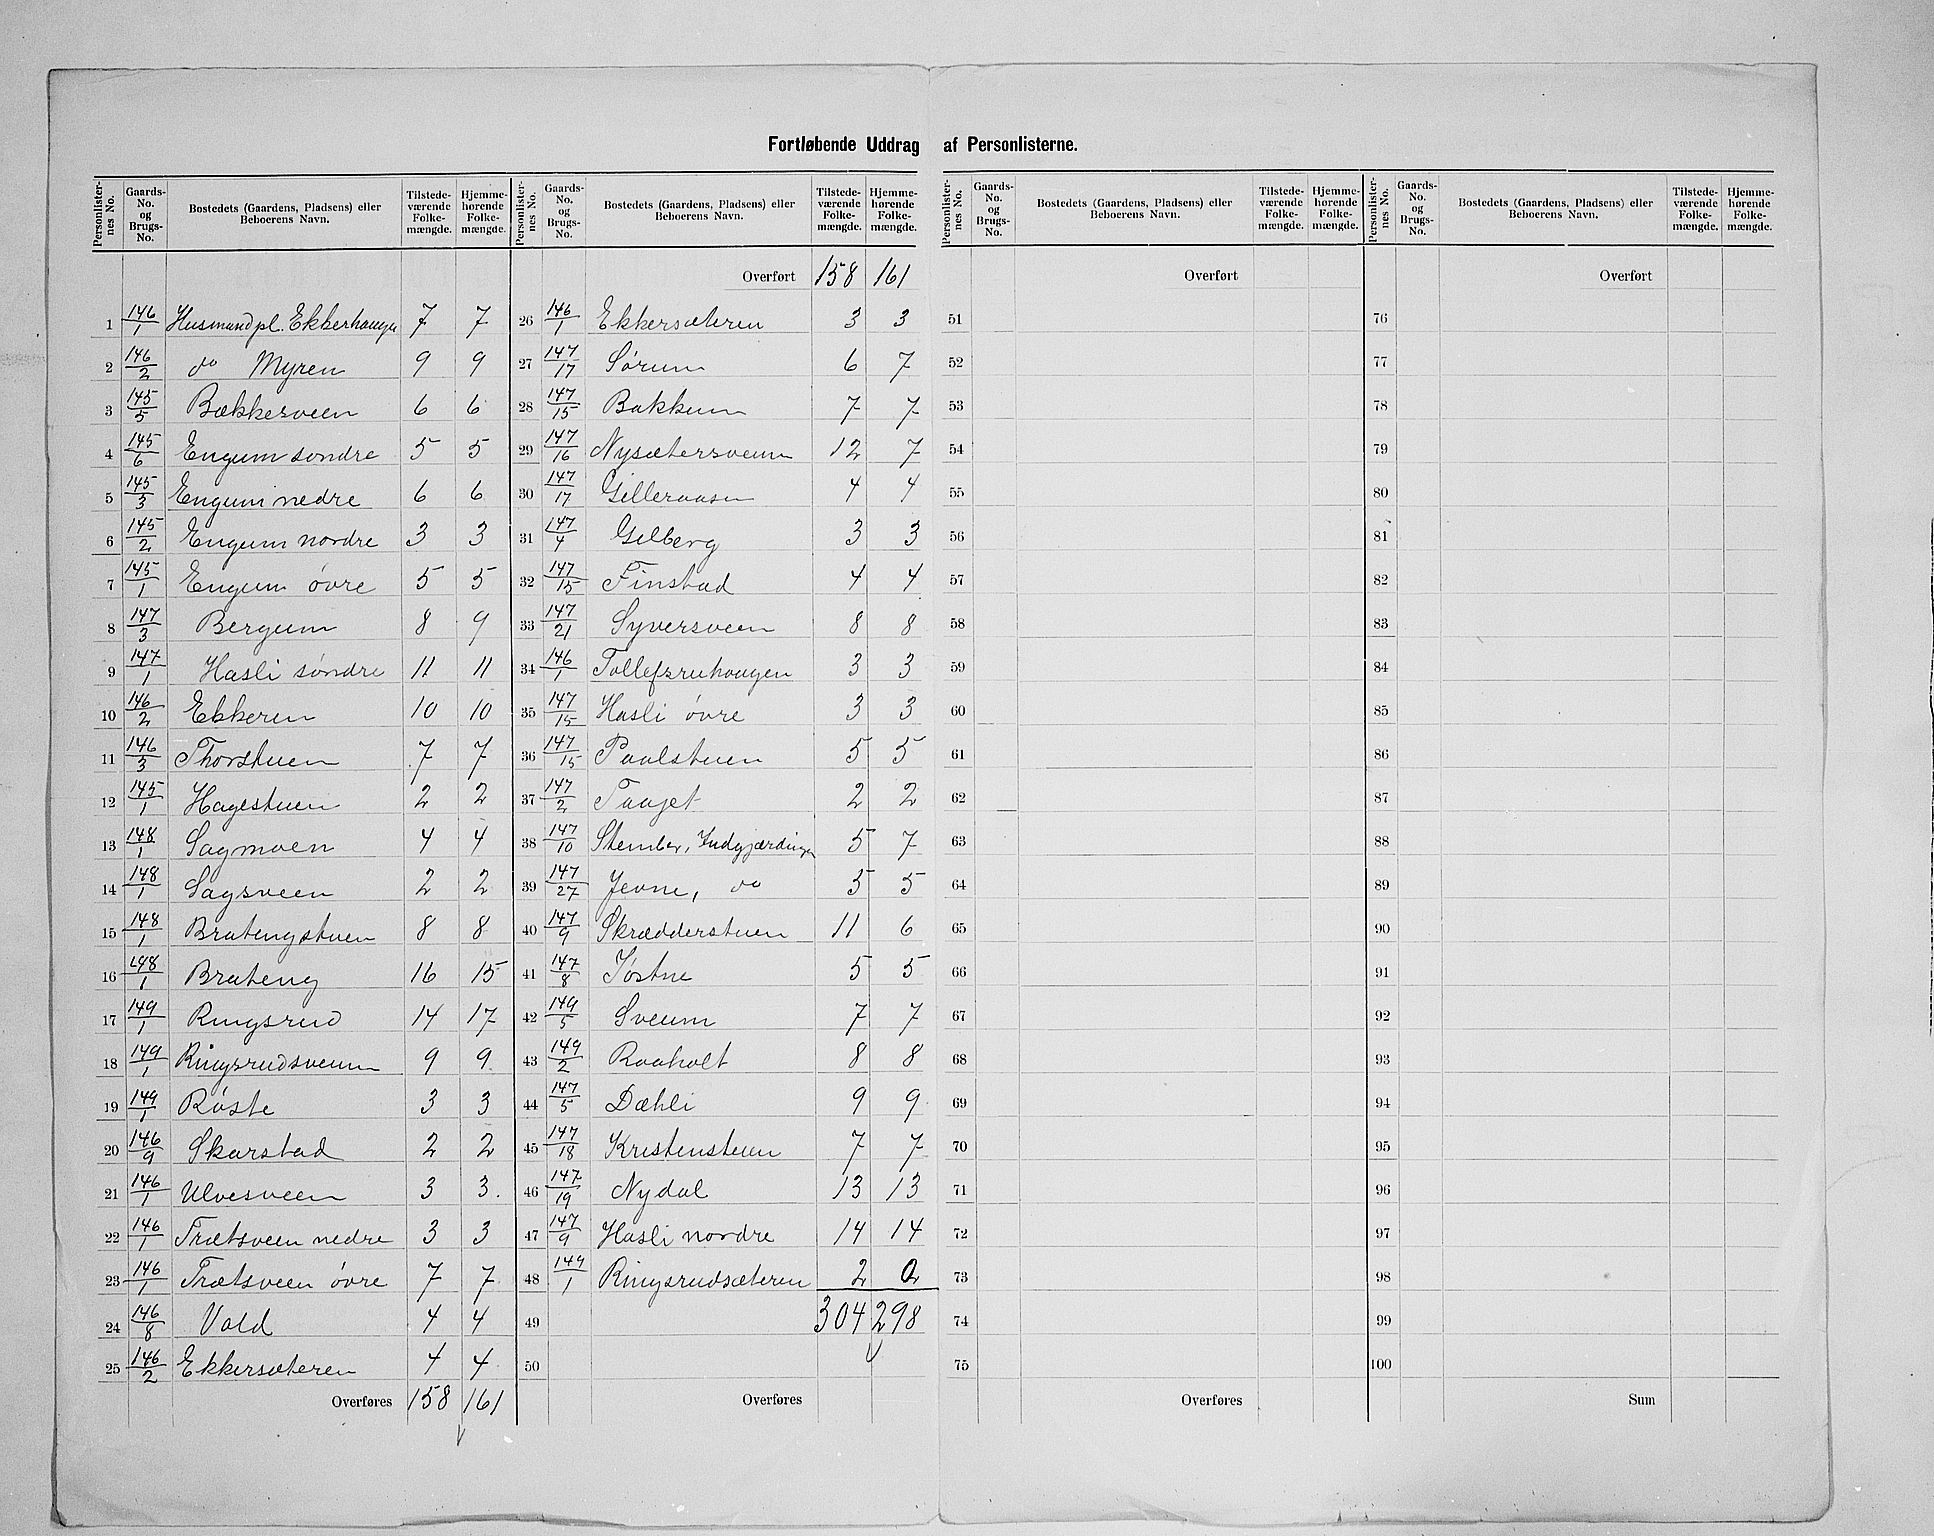 Fortløbende Uddrag af Personlisterne.
Personlister-nes No. Gaards-No. og Brugs-No. Bostedets (Gaardens, Pladsens) eller Beboerens Navn. Tilstede-værende Folke-mængde. Hjemme-hørende Folke-mængde.
1 146/1 Husmandpl. Ekkerhaugen 7 7
2 146/2 do Myren 9 9
3 145/5 Bækkesveen 6 6
4 145/6 Engum søndre 5 5
5 145/3 Engum nedre 6 6
6 145/2 Engum nordre 3 3
7 145/1 Engum øvre 5 5
8 147/3 Bergum 8 9
9 147/1 Hasli søndre 11 11
10 146/2 Ekkeren 10 10
11 146/3 Thorstuen 7 7
12 145/1 Hagestuen 2 2
13 148/1 Sagmoen 4 4
14 148/1 Sagsveen 2 2
15 148/1 Bratengstuen 8 8
16 148/1 Brateng 16 15
17 149/1 Ringsrud 14 17
18 149/1 Ringsrudsveen 9 9
19 149/1 Røste 3 3
20 146/9 Skarstad 2 2
21 146/1 Ulvesveen 3 3.
22 146/1 Trætsveen nedre 3 3
23 146/1 Trætsveen øvre 7 7
24 146/8 Vold 4 4
25 146/2 Ekkersæteren 4 4
Overføres 158 161
Personlister-nes No. Gaards-No. og Brugs-No. Bostedets (Gaardens, Pladsens) eller Beboerens Navn. Tilstede-værende Folke-mængde. Hjemme-hørende Folke-mængde.
Overført 158 161
26 146/1 Ekkersæteren 3 3
27 147/17 Sørum 6 7
28 147/15 Bakkum 7 7
29 147/16 Nysætersveen 12 7
30 147/17 Gilleraasen 4 4
31 147/4 Gilberg 3 3
32 147/15 Finstad 4 4
33 147/21 Syversveen 8 8
34 146/1 Tollefsruhaugen 3 3
35 147/15 Hasli øvre 3 3
36 147/15 Paalstuen 5 5
37 147/2 Taajet 2 2
38 147/10 Stember, Indgjærdingen 5 7
39 147/27 Jevne, do 5 5
40 147/9 Skrædderstuen 11 6
41 147/8 Jøstne 5 5
42 149/5 Sveum 7 7
43 149/2 Raaholt 8 8
44 147/5 Dæhli 9 9
45 147/18 Kristenstuen 7 7
46 147/19 Nydal 13 13
47 147/9 Hasli nordre 14 14
48 149/1 Ringsrudsæteren 2 0
49 304 298
50
Overføres
Personlister-nes No. Gaards-No. og Brugs-No. Bostedets (Gaardens, Pladsens) eller Beboerens Navn. Tilstede-værende Folke-mængde. Hjemme-hørende Folke-mængde.
Overført
51
52
53
54
55
56
57
58
59
60
61
62
63
64
65
66
67
68
69
70
71
72
73
74
75
Overføres
Personlister-nes No. Gaards-No. og Brugs-No. Bostedets (Gaardens, Pladsens) eller Beboerens Navn. Tilstede-værende Folke-mængde. Hjemme-hørende Folke-mængde.
Overført
76
77
78
79
80
81
82
83
84
85
86
87
88
89
90
91
92
93
94
95
96
97
98
99
100
Sum